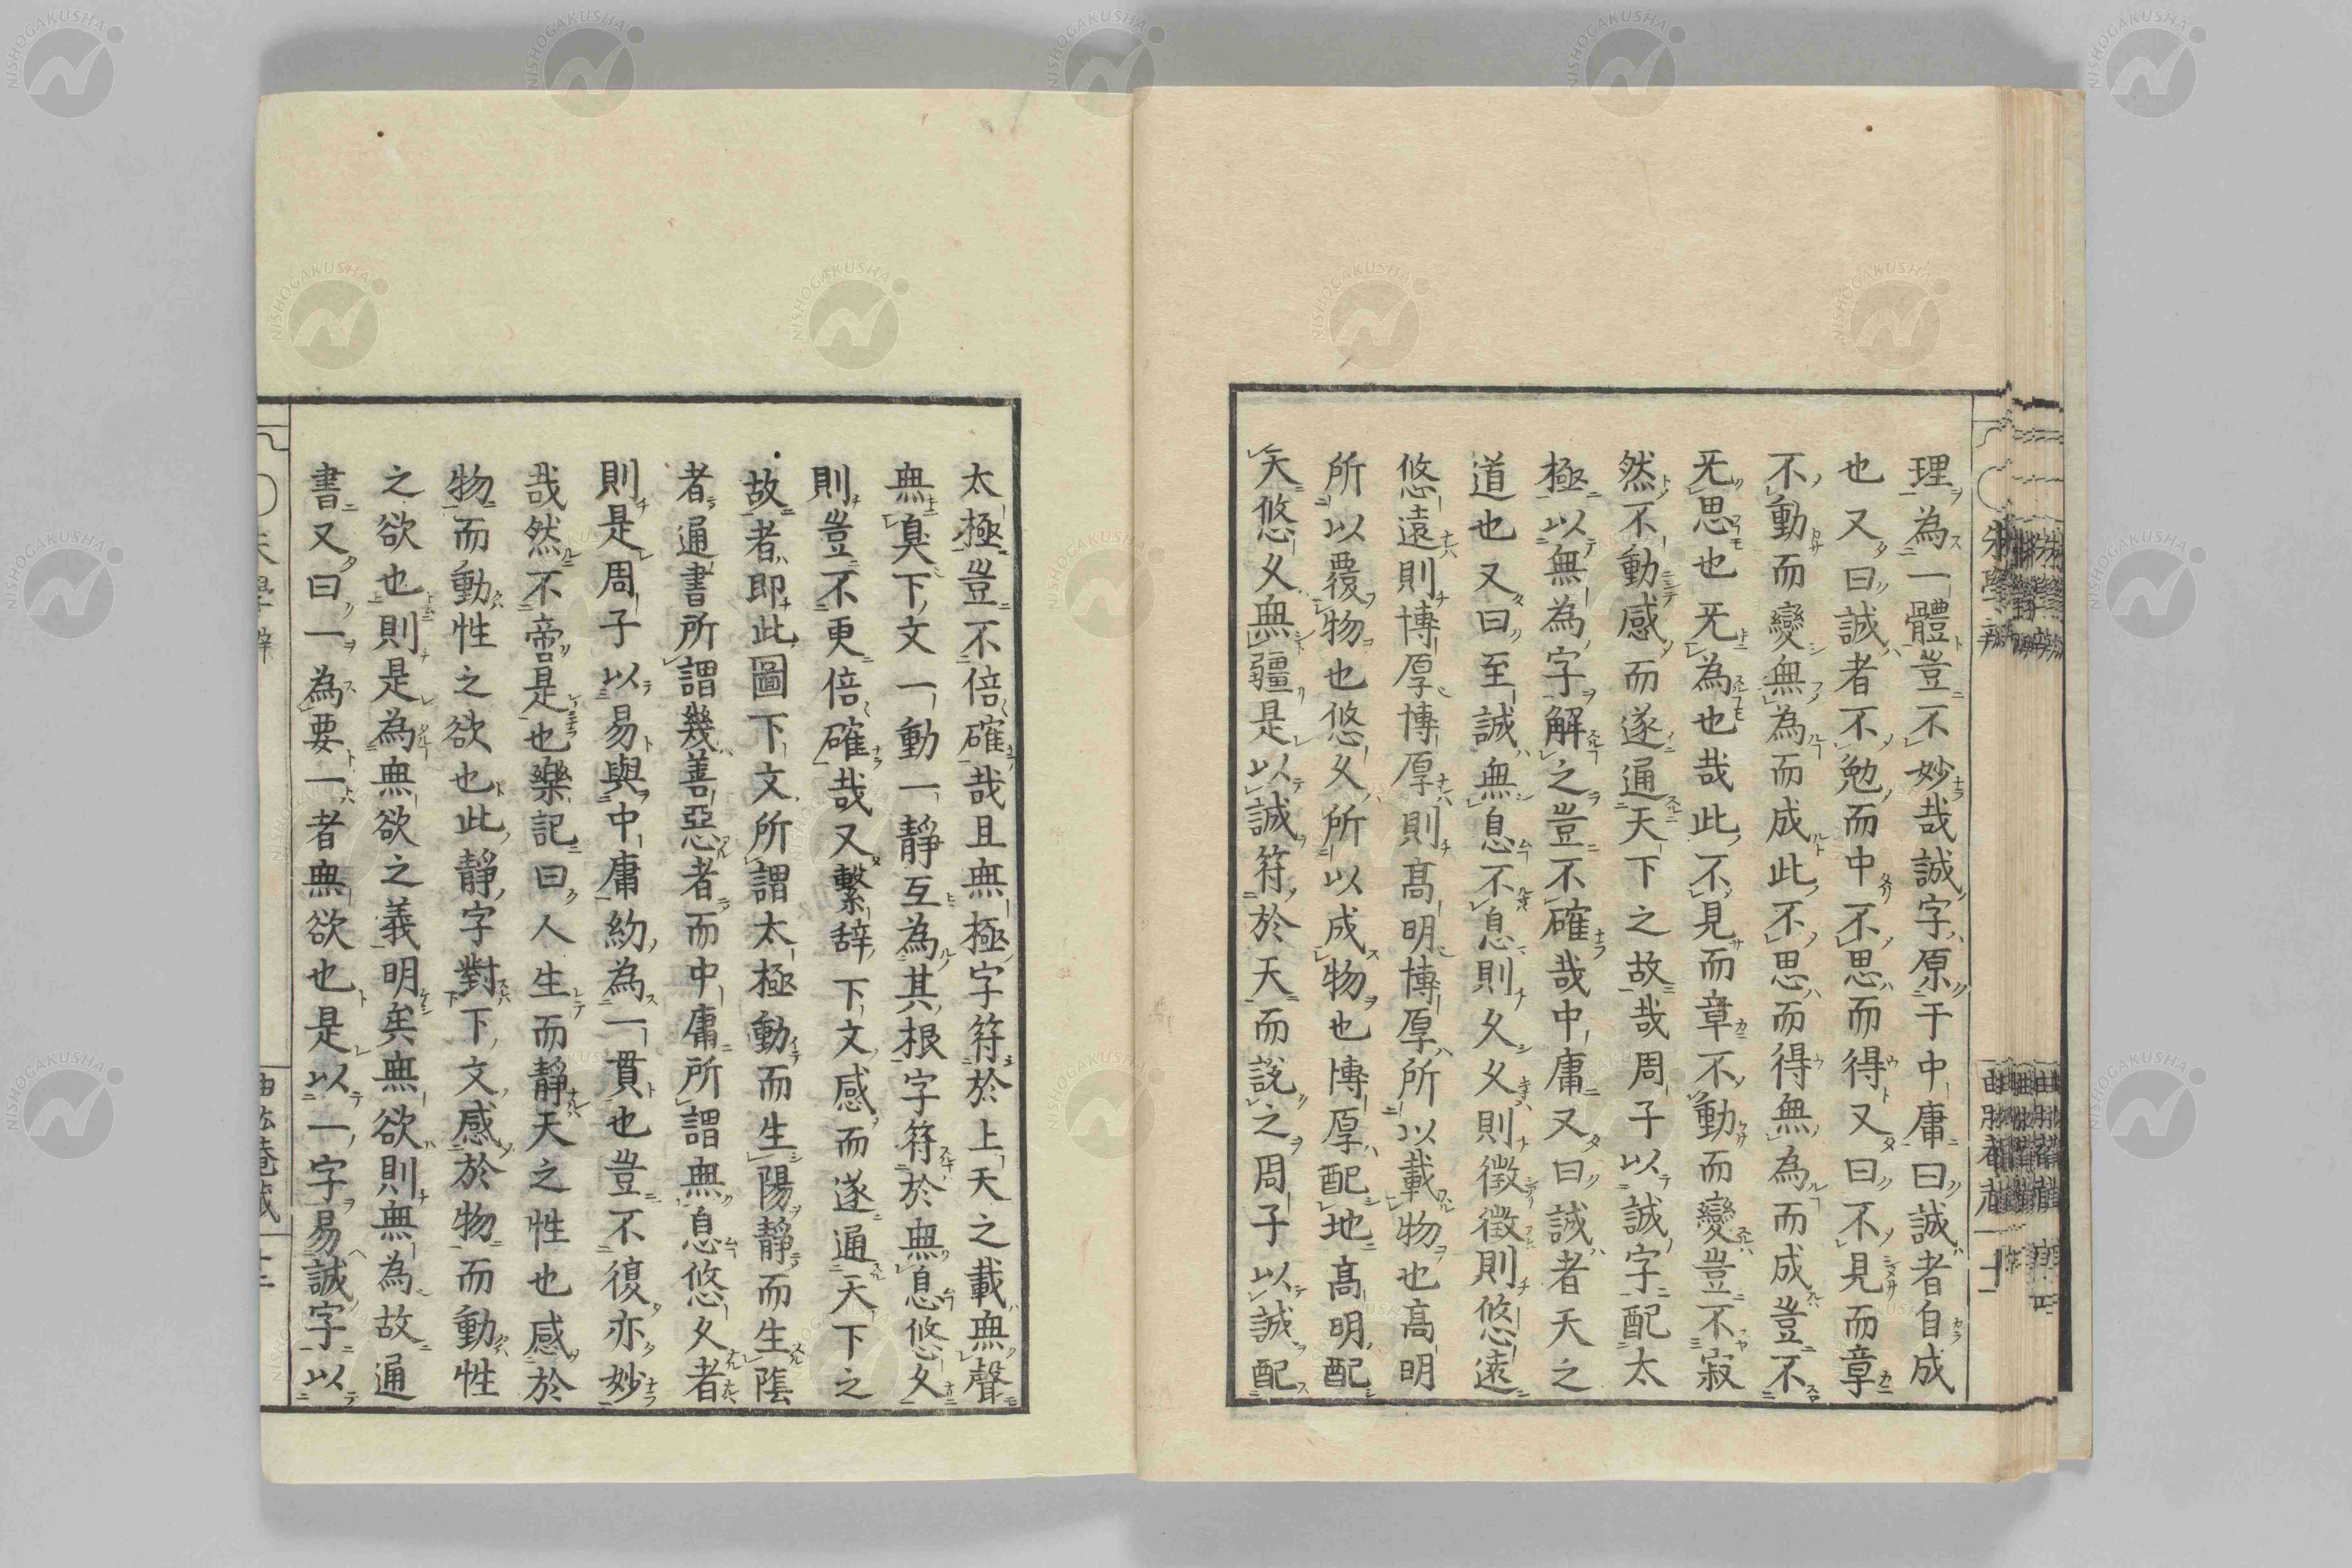 理為一體豈不妙哉誠字原于中庸曰誠者自成
也又曰誠者不勉而中不思而得又曰不見而章
不動而變無為而成此不思而得無為而成豈不
无思也无為也哉此不見而章不動而變豈不寂
然不動感而遂通天下之故哉周子以誠字配太
極以無為字解之豈不確哉中庸又曰誠者天之
道也又曰至誠無息不息則久久則徵徵則悠遠
悠遠則博厚博厚則高明博厚所以載物也高明
所以覆物也悠久所以成物也博厚配地高明配
天悠久無疆是以誠符於天而說之周子以誠配
太極豈不倍確哉且無極字符於上天之載無聲
無臭下文一動一靜互為其根字符於無息悠久
則豈不更倍確哉又繫辞下文感而遂通天下之
故者即此圖下文所謂太極動而生陽靜而生陰
者通書所謂幾善惡者而中庸所謂無息悠久者
則是周子以易與中庸約為一貫也豈不復亦妙
哉然不啻是也樂記曰人生而靜天之性也感於
物而動性之欲也此靜字對下文感於物而動性
之欲也則是為無欲之義明矣無欲則無為故通
書又曰一為要一者無欲也是以一字易誠字以